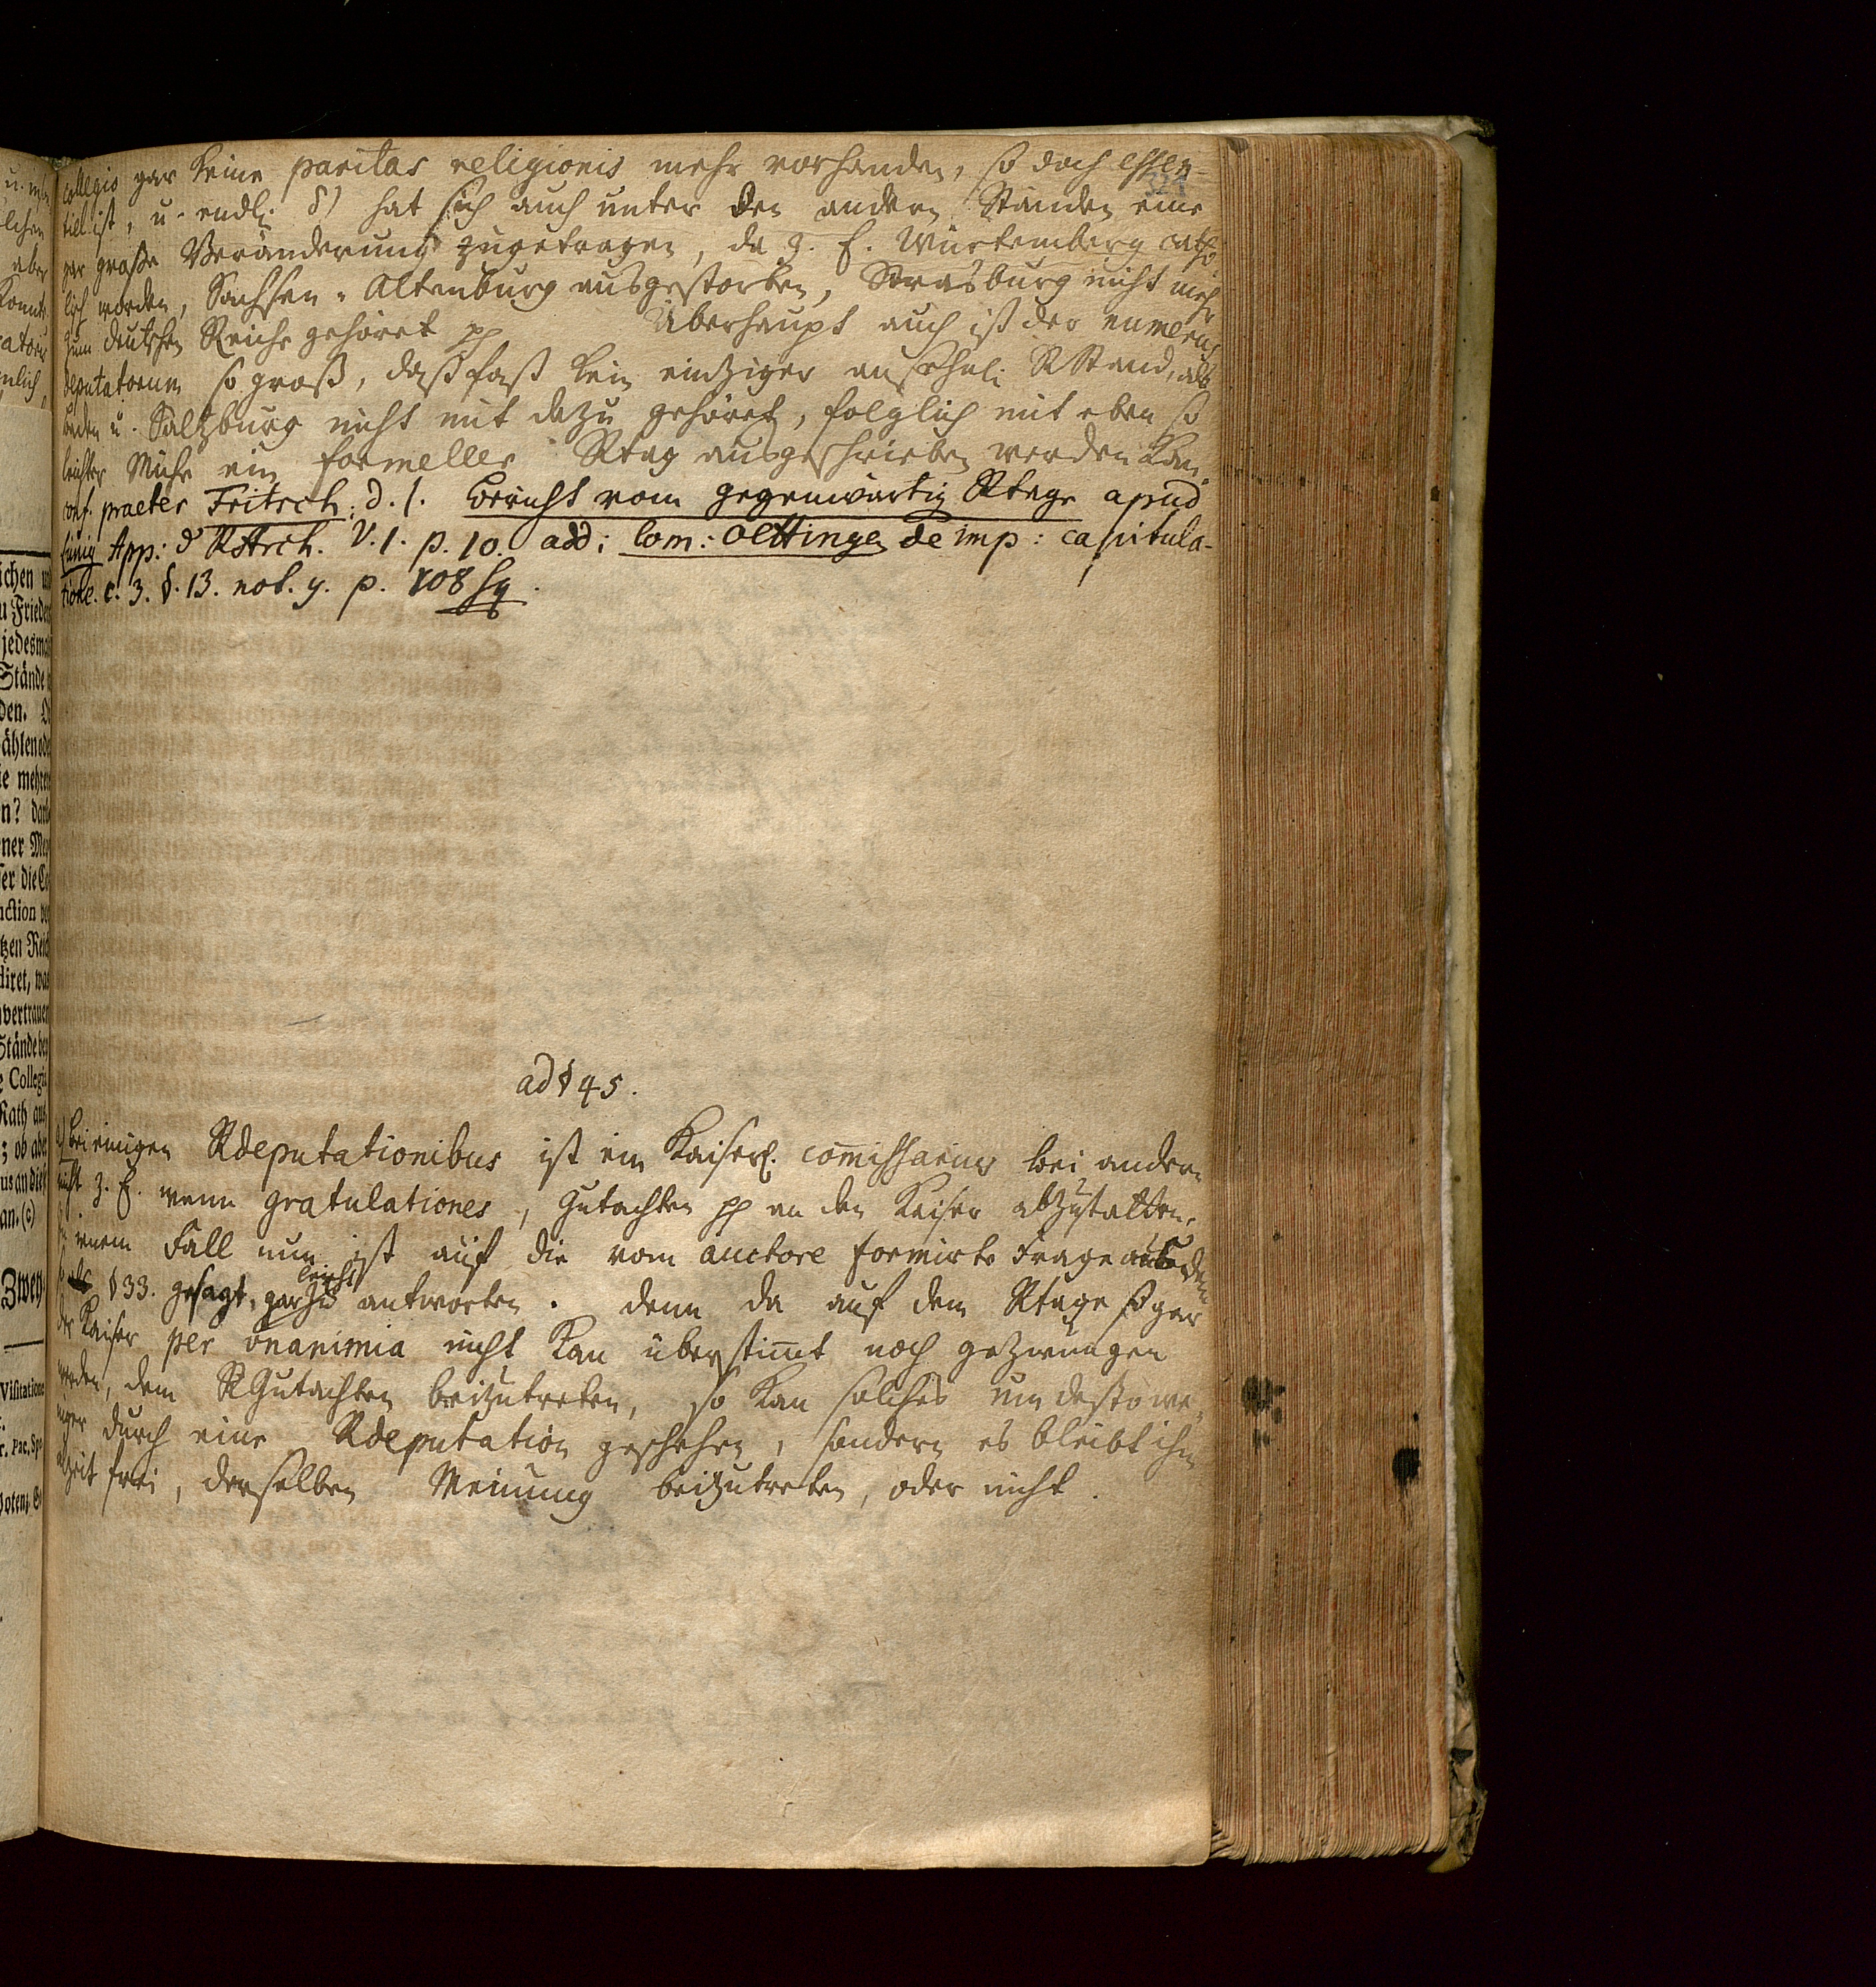 collegio gar keine paritas religionis mehr vorhanden, so doch essen-
tiel ist, u. endl. δ) hat sich auch unter den andern Ständen eine
gar große Veränderung zugetragen, da z. E. Würtemberg catho-
lisch worden, Sachsen-Altenburg ausgestorben, Strasburg nicht mehr
zum deutschen Reiche gehöret pp Überhaupt auch ist der numerus
deputatorum so groß, daß fast kein einziger ansehnl. RStand, als
Baden u. Saltzburg nicht mit dazu gehöret, folglich mit eben so
leichter Mühe ein formeller Rtag ausgeschrieben werden kan
conf. praeter Fritsch. d. l. Bericht vom gegenwärtig Rtage apud
Lünig App: d RArch. V. 1. p. 10. add: Com: Oettinge de imp: capitula-
tione. c. 3. §. 13. not. y. p. 108 sq.
ad § 45.
a) bei einigen Rdeputationibus ist ein Kaiserl. comissarius bei andern
nicht z. E. wenn gratulationes, Gutachten pp an den Kaiser abzustatten.
In jenem Fall nun ist auf die vom auctore formirte Frage aus dem
so § 33. gesagt, gar leicht zu antworten. denn da auf dem Rtage sogar
der Kaiser per unanimia nicht kan überstimt noch gezwungen
werden, dem RGutachten beizutreten, so kan solches um desto we-
niger durch eine Rdeputation geschehen, sondern es bleibt ihm
allzeit frei, derselben Meinung beizutreten, oder nicht.